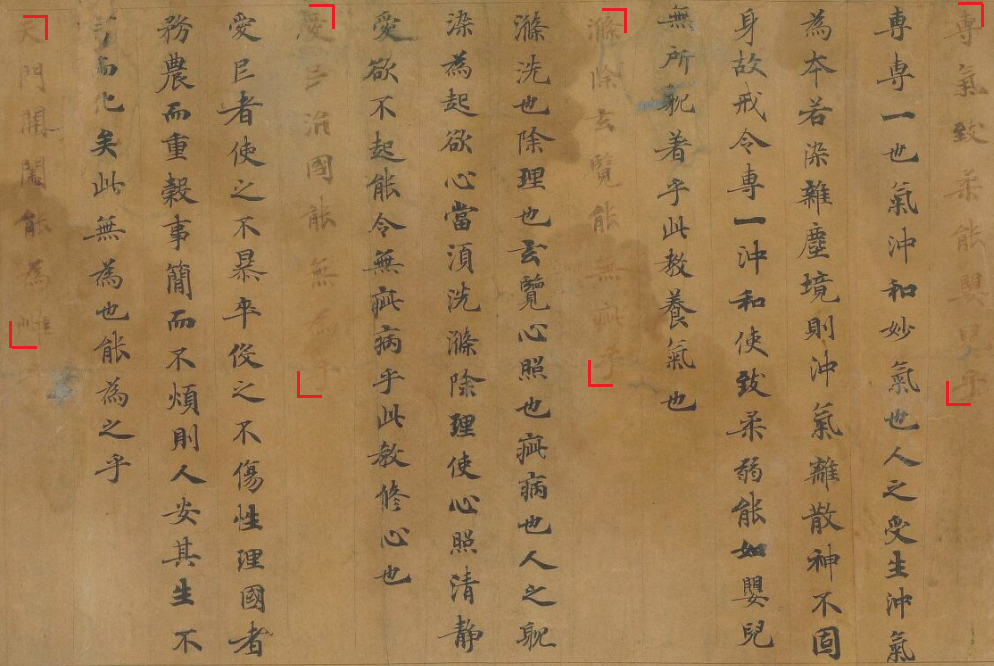 專氣致柔能嬰兒乎
專專一也氣沖和妙氣也人之受生沖氣
為本若染雜塵境則沖氣離散神不固
身故戒令專一沖和使致柔弱能如嬰兒
無所躭著乎此教養氣也
滌除玄覽能無疵乎
滌洗也除理也玄覽心照也疵病也人之躭
染為起欲心當湏洗滌除理使心照清静
愛欲不起能令無疵病乎此教修心也
愛民治國能無為乎
愛民者使之不暴卒役之不傷性理國者
務農而重穀事簡而不煩則人安其生不
言而化矣此無為也能為之乎
天門開闔能為雌